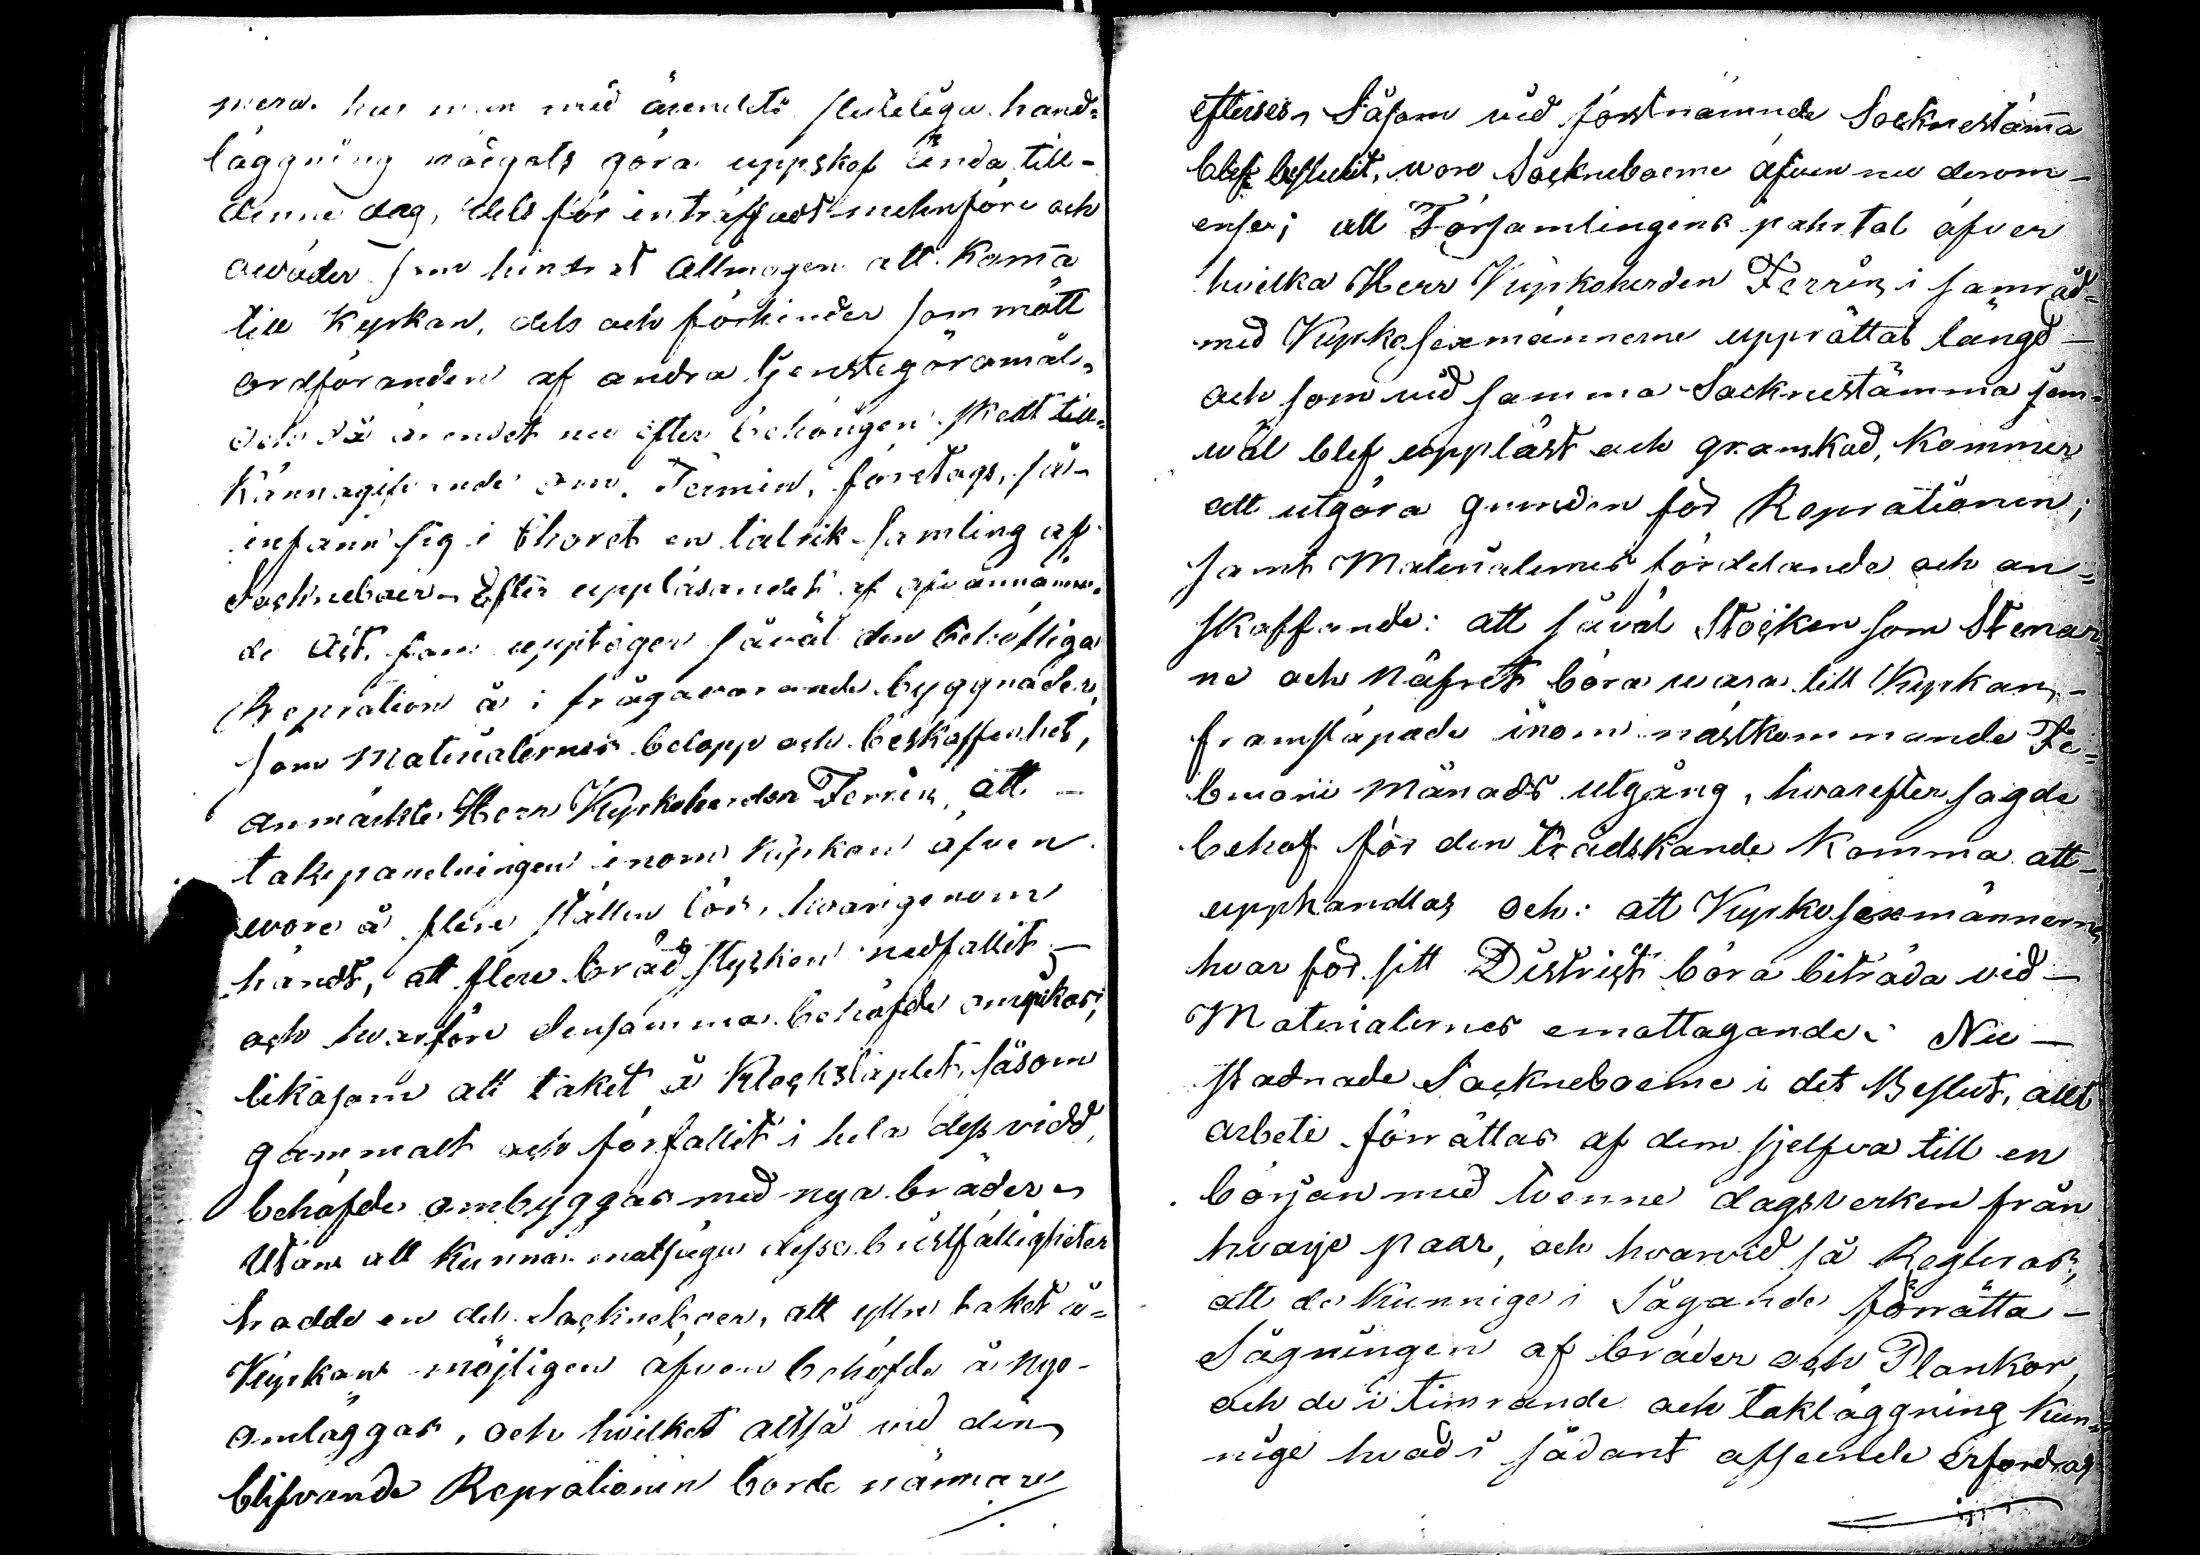 mera. har man med ärendets slutliga hand=
läggning nödgats göra uppskof ända till-
denne dag, dels för inträffadt mehnföre och
owäder som hindrat Allmogen att komma
till Kyrkan, dels och förhinder som mött
ordföranden af andra tjenstegöromål,
och då ärendet nu efter behörigen skedt till=
kännagifvande om Termin, företogs, så
infann sig i Choret en talrik samling af
Sockneboer. Efter uppläsandet af ofvannämn=
de Act, som upptager såväl den behöfliga
Repration å i frågavarande byggnader,
som Materialernes belopp och beskaffenhet,
anmärkte Herr Kyrkoherden Ferrin, att -
takpanelningen inom Kyrkan äfven
wore å flere ställen lös, hvarigenom
händt, att flere brädstycken nedfallit -
och hvarföre densamma behöfde omspikas;
likasom att taket å Klockstapeln, såsom
gammalt och förfallit i hela dess vidd,
behöfde ombyggas med nya bräder.
Utan att kunna motsäga dessa bristfälligheter
trodde en del Sockneboer, att yttre taket å=
Kyrkan möjligen äfven behöfde å nyo-
omläggas, och hvilket altså vid den
blifvande Reprationen borde närmare
efterses. Såsom vid förstnämnde Socknestämma
blef beslutit, woro Socknboerne äfven nu derom-
ense; att Församlingens pahrtal öfver
hvilka Herr Kyrkoherden Ferrin, i samråd-
med Kyrkosexmännerne upprättat längd-
och som vid samma Socknestämma jem-
wäl blef uppläst och granskad, kommer
att utgöra grunden för Reprationen;
samt Materialernes fördelande och an=
skaffande: att såväl Stocken som Stenar=
ne och Näfret böra wara till Kyrkan,-
framsläpade inom nästkommande Fe=
bruarii Månads utgång, hvarefter sagde
behof för den tredskande komma att-
upphandlas och: att Kyrkosexmännerne
hvar för sitt District böra biträda vid-
Materialernes emottagande. Nu-
stadnade Sockneboerne i det Beslut, att
arbete förrättas af dem sjelfva till en
början med tvenne dagsverken från
hvarje paar, och hvarvid så Regleras,
att de kunnige i Sågande förrätta-
Sågningen af bräder och Plankor,
och de i timrande och takläggning kun=
nige hvad i sådant afseende erfordras